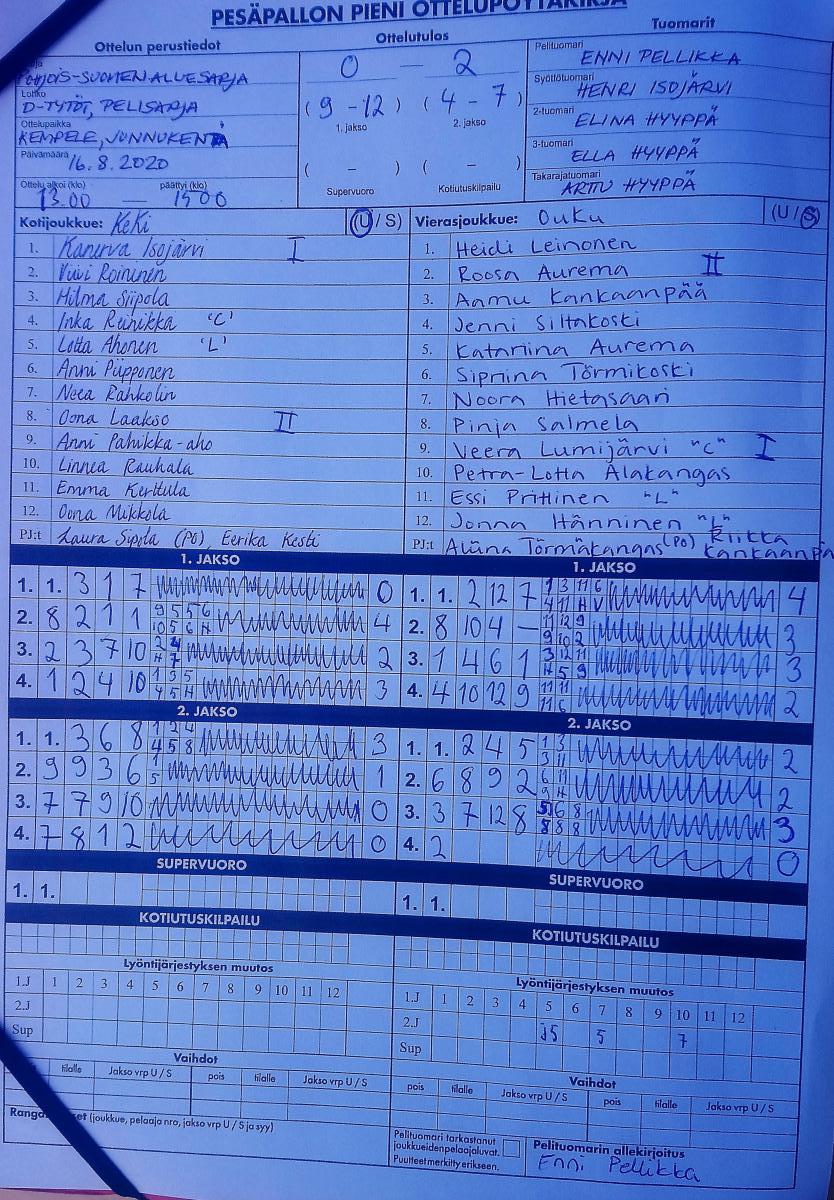 PESÄPALLON PIENI OTTELUPÖYTÄKIRJA
Ottelun perustiedot
POHJOIS-SUOMEN ALUESARJA
Lohko
D-TYTÖT, PELISARJA
Ottelupaikka
KEMPELE, JUNNUKENTÄ
Päivämäärä
16.8.2020
Ottelu alkoi (klo) päättyi (klo)
13.00 — 15.00
Ottelutulos
0 — 2
(9 - 12) (4 - 7)
1. jakso 2. jakso
( - ) ( - )
Supervuoro Kotiutuskilpailu
Tuomarit
Pelituomari
ENNI PELLIKKA
Syöttötuomari
HENRI ISOJÄRVI
2-tuomari
ELINA HYYPPÄ
3-tuomari
ELLA HYYPPÄ
Takarajatuomari
ARTTU HYYPPÄ
Kotijoukkue: KeKi (U / S)
1. Kanerva Isojärvi I
2. Viivi Roininen
3. Hilma Siipola
4. Inka Reinikka "C"
5. Lotta Ahonen "L"
6. Anni Piipponen
7. Neea Rahkolin
8. Oona Laakso II
9. Anni Pahikka-aho
10. Linnea Rauhala
11. Emma Kerttula
12. Oona Mikkola
PJ:t Laura Sipola (PO) Eerika Kesti
Vierasjoukkue: OuKu (U / S)
1. Heidi Leinonen
2. Roosa Aurema II
3. Aamu Kankaanpää
4. Jenni Siltakoski
5. Katariina Aurema
6. Siprina Törmikoski
7. Noora Hietasaari
8. Pinja Salmela
9. Veera Lumijärvi "C" I
10. Petra-Lotta Alakangas
11. Essi Prittinen "L"
12. Jonna Hänninen "L"
PJ:t Aliina Törmäkangas (PO) Riikka Kankaanpää
1. JAKSO
1. 1. 3 1 7 0
2. 8 2 1 1 9 5 5 6 10 5 6 H 4
3. 2 3 7 10 2 4 H 7 2
4. 1 2 4 10 1 3 5 4 5 H 3
2. JAKSO
1. 1. 3 6 8 1 2 4 4 5 8 3
2. 9 9 3 6 1 5 1
3. 7 7 9 10 0
4. 7 8 1 2 0
SUPERVUORO
1. 1.
KOTIUTUSKILPAILU
Lyöntijärjestyksen muutos
1.J 1 2 3 4 5 6 7 8 9 10 11 12
2.J
Sup
Vaihdot
tilalle Jakso vrp U / S pois tilalle Jakso vrp U / S
1. JAKSO
1. 1. 2 12 7 1 3 11 6 4 11 H V 4
2. 8 10 4 — 11 12 9 9 10 2 3
3. 1 4 6 1 3 12 11 H 5 9 3
4. 4 10 12 9 11 11 11 6 2
2. JAKSO
1. 1. 2 4 5 1 3 3 11 2
2. 6 8 9 2 6 11 9 H 2
3. 3 7 12 8 5 6 8 8 8 8 3
4. 2 0
SUPERVUORO
1. 1.
KOTIUTUSKILPAILU
Lyöntijärjestyksen muutos
1.J 1 2 3 4 5 6 7 8 9 10 11 12
2.J 5 7
Sup
Vaihdot
pois tilalle Jakso vrp U / S pois tilalle Jakso vrp U / S
(joukkue, pelaaja nro, jakso vrp U / S ja syy)
Pelituomari tarkastanut
joukkueiden pelaajaluvat.
Puutteet merkitty erikseen.
Pelituomarin allekirjoitus
Enni Pellikka